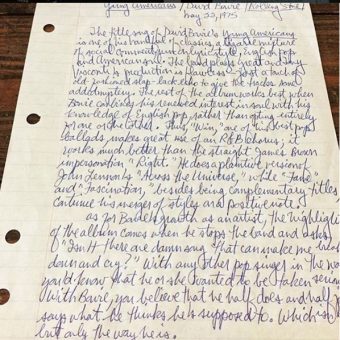 Young Americans / David Bowie (Rolling Stone)
May 22, 1975
The title song of David Bowie's Young Americans
is one of his handful of classics, a bizarre mixture
of social comment, run-on lyric style, English pop
and American soul. The band plays great and Tony
Visconti's production is flawless — just a touch of
old-fashioned slap-back echo to give the tracks some
added tempting. The rest of the album works best when
Bowie combines his renewed interest in soul with his
knowledge of English pop, rather than opting entirely
for one or the other. Thus, "Win," one of his best pop
ballads, makes great use of an R&B chorus; it
works much better than the straight James Brown
impersonation "Right." He does a plaintive version of
John Lennon's "Across the Universe," while "Fame"
and "Fascination," besides being complementary titles,
continue his merger of styles on a positive note.
as for Bowie's growth as an artist, the highlight
of the album comes when he stops the band and asks,
"Isn't there one damn song that can make me break
down and cry?" With any other pop singer in the
you'd know that he or she wanted to be taken
With Bowie, you believe that he half does and half
says what he thinks he's supposed to. Which is
but only the way he is.